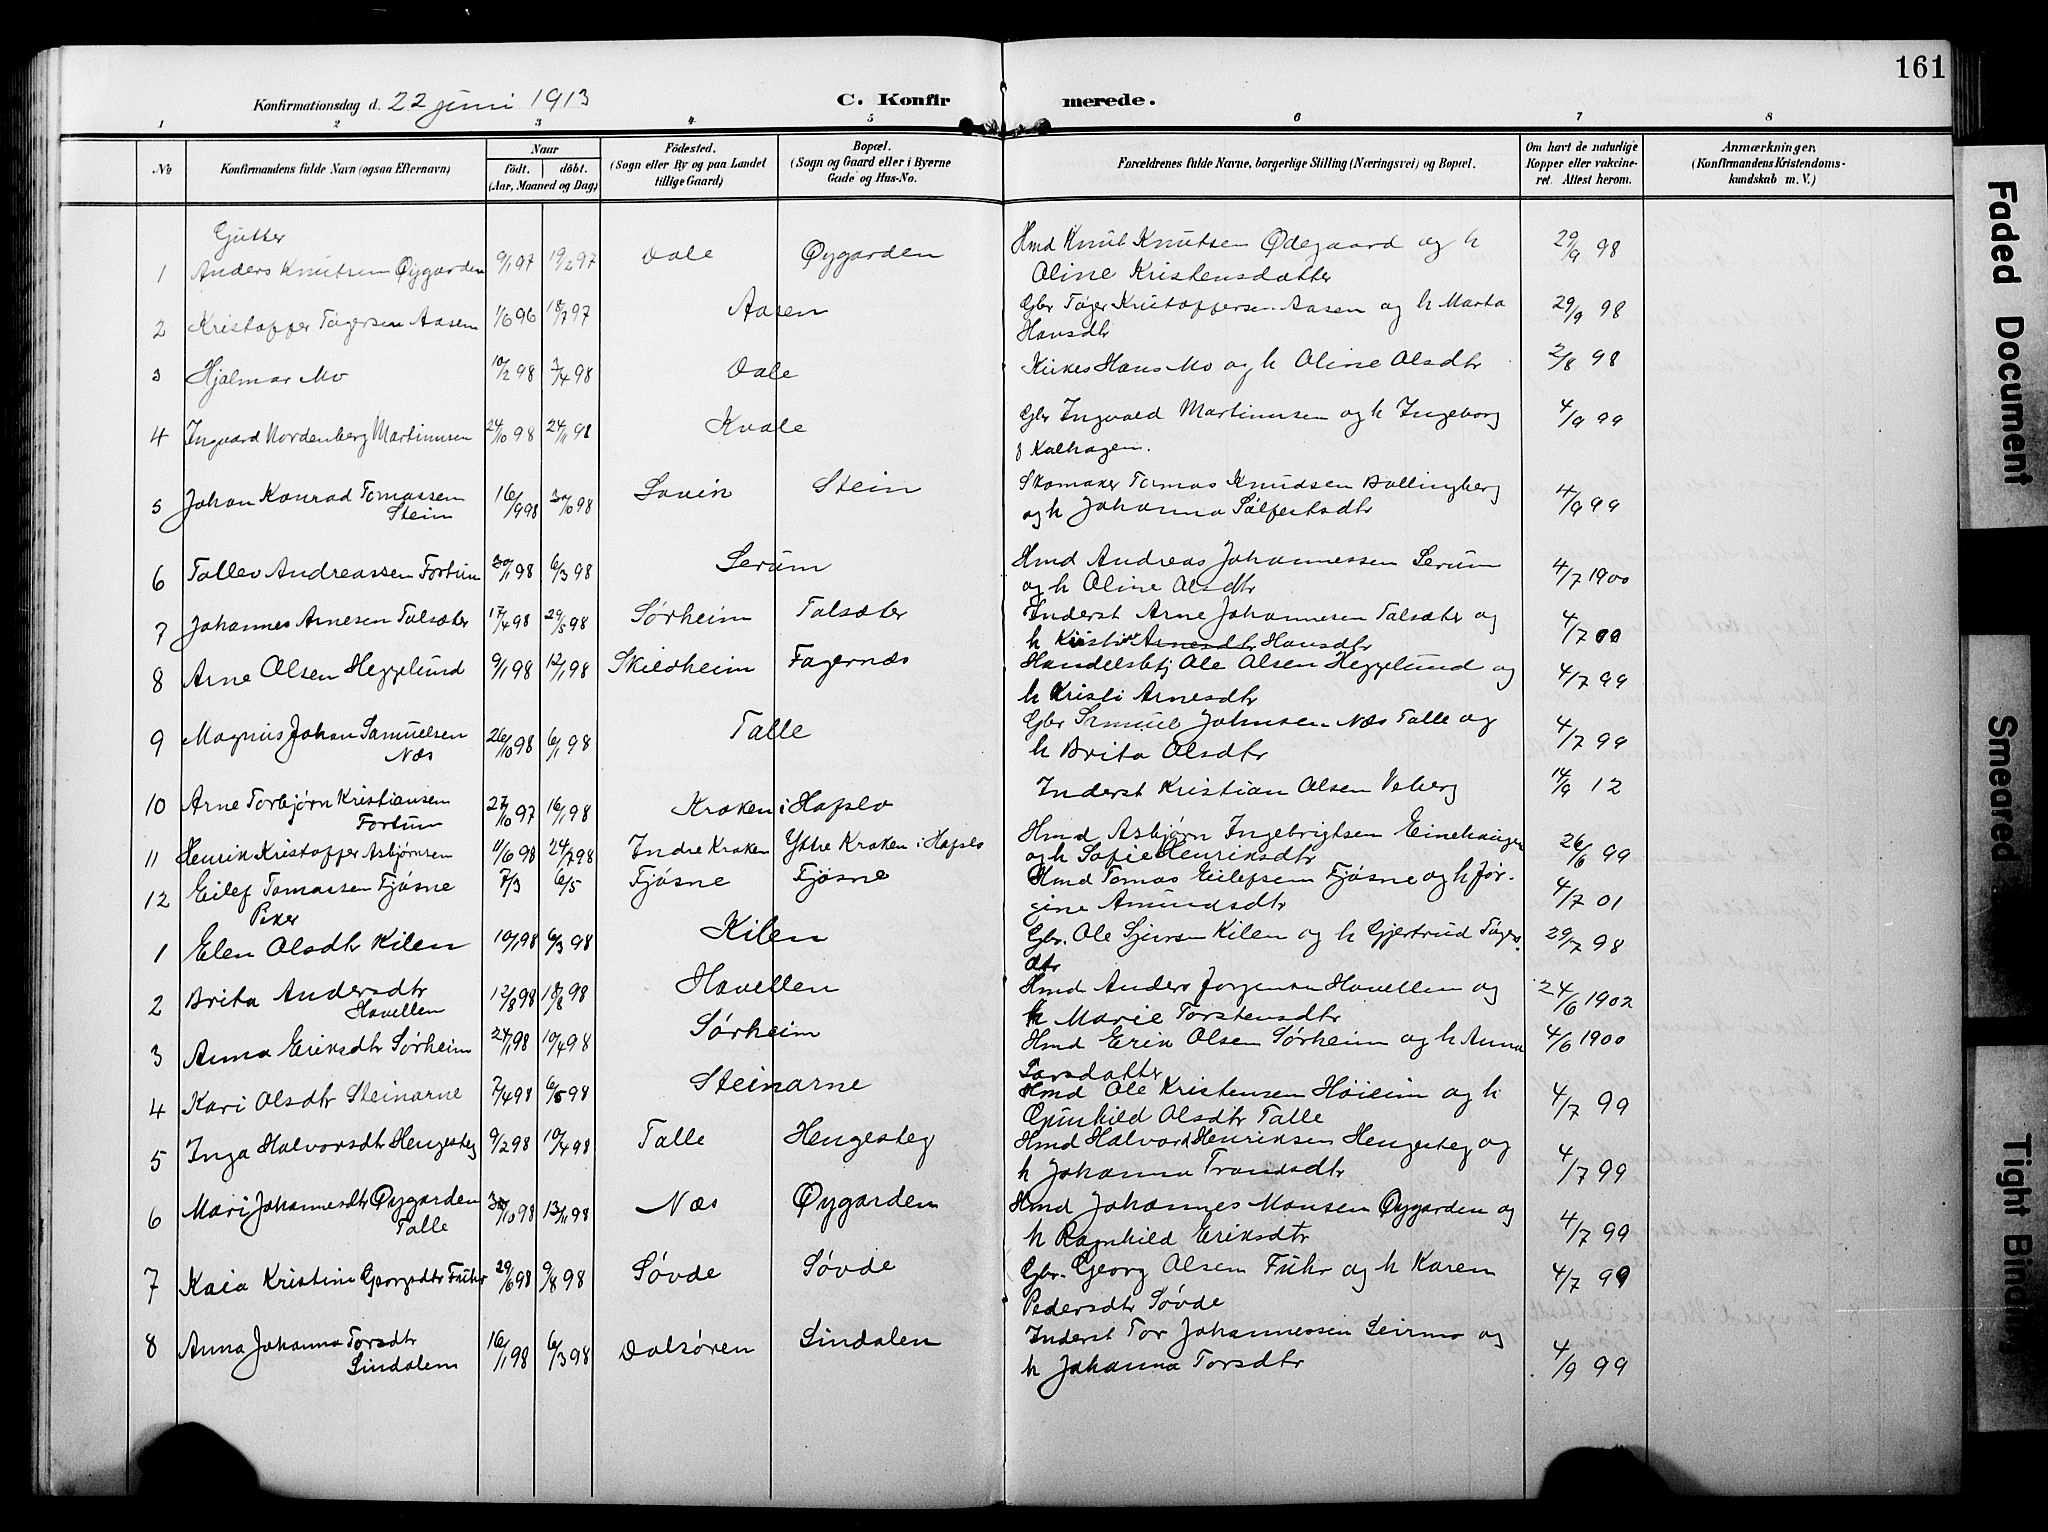 161
Konfirmationsdag d. 22 juni 1913
C. Konfirmerede.
1 2 3 4 5 6 7 8
No
Konfirmandens fulde Navn (ogsaa Efternavn)
Naar
födt. döbt.
(Aar, Maaned og Dag)
Födested.
(Sogn eller By og paa Landet
tillige Gaard)
Bopæl.
(Sogn og Gaard eller i Byerne
Gade og Hus-No.
Forældrenes fulde Navne, borgerlige Stilling (Næringsvei) og Bopæl.
Om havt de naturlige
Kopper eller vakcine-
ret. Attest herom.
Anmærkninger,
(Konfirmandens Kristendoms-
kundskab m. V.)
Gutter
1 Anders Knutsen Øygarden 9/1 97 19/2 97 Dale Øygarden Hmd Knut Knutsen Ødegaard og h 29/9 98
Aline Kristensdatter
2 Kristoffer Tøgersen Aasen 1/6 96 18/7 97 Aasen Gbr Tøger Kristoffersen Aasen og h Marta 29/9 98
Hansdtr
3 Hjalmar Mo 10/2 98 3/4 98 Dale Hans Mo og h Aline Olsdtr 2/8 98
4 Ingvard Nordenberg Martinusen 24/10 98 24/11 98 Kvale Gbr Ingvald Martinusen og h Ingeborg 4/9 99
f Kalhagen.
5 Johan Konrad Tomassen 16/9 98 30/10 98 Lavik Stein Skomaker Tomas Knudsen Bollingberg 4/9 99
Steim og h Johanna Sølfestsdtr
6 Tollev Andreassen Fortun 30/1 98 6/3 98 Lerum Hmd Andreas Johannessen Lerum 4/7 1900
og h Aline Olsdtr
7 Johannes Arnesen Talsæter 17/4 98 29/5 98 Sørheim Talsæter Inderst Arne Johannesen Talsæter og 4/7 00
h Kristi Arnesdtr Hansdtr
8 Arne Olsen Heggelund 9/1 98 12/1 98 Skildheim Fagernæs Handelsbtj Ole Olsen Heggelund og 4/7 99
h Kristi Arnesdtr
9 Magnus Johan Samuelsen 26/10 98 6/1 98 Talle Gbr Samuel Johnsen Næs Talle og 4/7 99
Næs h Brita Olsdtr
10 Arne Torbjørn Kristiansen 27/10 97 16/1 98 Kroken i Hafslo Inderst Kristian Olsen Veberg 14/9 12
Fortun
11 Henrik Kristoffer Asbjørnsen 11/6 98 24/7 98 Indre Kroken Ytre Kroken i Hafslo Hmd Asbjørn Ingebrigtsen Einehaugen 26/6 99
og h Sofie Henriksdtr
12 Eilef Tomassen Fjøsne 7/3 6/5 Fjøsne Fjøsne Hmd Tomas Eilefsen Fjøsne og h Jør- 4/7 01
gine Amundsdtr
Piker
1 Elen Olsdtr Kilen 10/1 98 6/3 98 Kilen Gbr. Ole Sjursen Kilen og h Gjertrud Tøgers 29/7 98
dtr
2 Brita Andersdtr 12/8 98 18/8 98 Havellen Hmd Anders Jørgensen Havellen og 24/6 1902
Havellen h Marie Torstensdtr
3 Anna Eriksdtr Sørheim 24/1 98 10/4 98 Sørheim Hmd Erik Olsen Sørheim og h Anna 4/6 1900
Larsdatter
4 Kari Olsdtr Steinarne 7/4 98 6/5 98 Steinarne Hmd Ole Kristensen Høieim og h 4/7 99
Gunhild Olsdtr Talle
5 Inga Halvorsdtr Hengesteg 9/2 98 10/4 98 Talle Hengesteg Hmd Halvard Henriksen Hengesteg og 4/7 99
h Johanna Trondsdtr
6 Mari Johannesdtr Øygarden 30/10 98 13/11 98 Næs Øygarden Hmd Johannes Monsen Øygarden og 4/7 99
Talle h Ragnhild Eriksdtr
7 Kaia Kristine Georgsdtr Fuhr 29/6 98 9/8 98 Søvde Søvde Gbr. Georg Olsen Fuhr og h Karen 4/7 99
Pedersdtr Søvde
8 Anna Johanna Torsdtr 16/1 98 6/3 98 Dalsøren Lindalen Inderst Tor Johannessen Leirmo og 4/9 99
Lindalem h Johanna Torsdtr
Faded Document
Smeared
Tight Binding